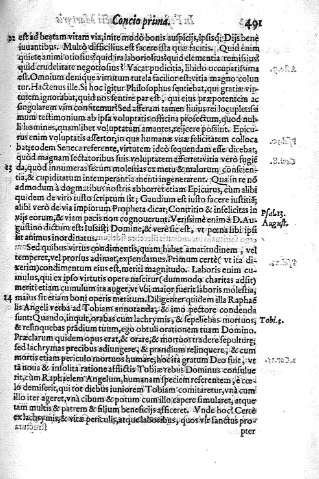 Concio prima. 491
22 est ad beatam vitam via, inite modò bonis auspicijs, ipsisq; Dijs benè
iuuantibus. Multò difficilius est facere ista quæ facitis. Quid enim
quiete animi otiosius quid ira laboriosius quid clementia remissius
quid crudelitate negotiosius? Vacat pudicitia, libido occupatissima
est. Omnium denique virtutum tutela facilior est: vitia magno coluntur.
Hactenus ille. Si hoc igitur Philosophus sentiebat, qui gratiæ virtutem
ignorabat, quid nos sentire par est, qui eius præpotentem ac
singularem vim
mum testimonium ab ipsa voluptatis officina profectum, quod nulli
homines, quam libet voluptatum amantes, eijcere possint. Epicurus
enim voluptatis assertor, in qua humanæ vitæ felicitatem collocabat,
eodem Seneca referente, virtutem ideò sequendam esse dicebat,
quòd magnam sectatoribus suis voluptatem afferret: vitia verò fugienda,
23 quòd innumeras secum molestias ex metu & malorum conscientia,
& cupiditatum intemperantia menti ingenerarent. Qua in re nõ
admodum à dogmatibus nostris abhorret etiam Epicurus, cùm alibi
quidem de viro iusto scriptum sit; Gaudium est iusto facere iustitiã;
alibi verò de via impiorum Propheta dicat; Contritio & infelicitas in
vijs eorum, & viam pacis non cognouerunt. Verissimè enim à D. Augustino Psal.13.
dictum est: Iussisti Domine, & verè sic est, vt pœna sibi ipsi August.
sit animus inordinatus.
Sed quibus virtus condimentis, quam habet amaritudinem, vel
temperet, vel prorsus adimat, expendamus. Primum certè (vt ita dixerim)
condimentum eius est, meriti magnitudo. Laboris enim cumulus,
qui ex ipso virtutis opere nascitur (dummodo charitas adsit)
meriti etiam cumulum ita auget, vt vbi maior fuerit laboris molestia,
24 maius sit etiam boni operis meritum. Diligenter quidem illa Raphaëlis
Angeli verba ad Tobiam annotanda, & imò pectore condenda
sunt: Quando, inquit, orabas cum lachrymis, & sepeliebas mortuos, Tobi.5.
& relinquebas prãdium tuum, ego obtuli orationem tuam Domino.
Præclarum quidem opus erat, & orare, & mortuos tradere sepulturæ;
sed lachrymas precibus adiungere, & prandium relinquere, & cum
mortis etiam periculo mortuos humare; hoc ita gratum Deo fuit, vt
tã noua & insolita ratione afflictis Tobiæ rebus Dominus consuluerit,
cùm Raphaëlem Angelum, humanam speciem referentem, è cœlo
demiserit, qui tot diebus iuniorem Tobiam comitaretur, vnà cum
illo iter ageret, vnà cibum & potum cum illo capere simularet, atque
tam multis & patrem & filium beneficijs afficeret. Vnde hoc? Certè
ex lachrymis, & vitæ periculis, atque laboribus, quos vir sanctus pro-
pter